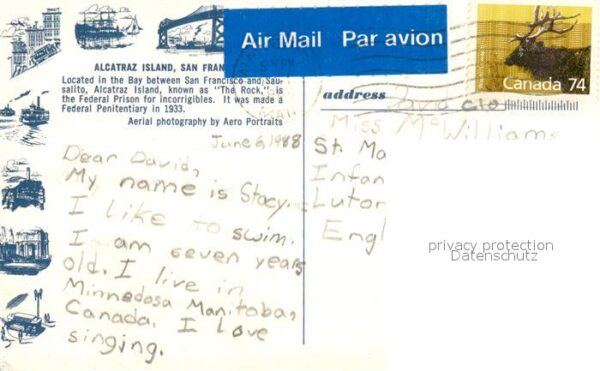 Air Mail Par avion
Canada 74
ALCATRAZ ISLAND, SAN FRAN
Located in the Bay between San Francisco and Sau-
salito, Alcatraz Island, known as "The Rock," is
the Federal Prison for incorrigibles. It was made a
Federal Penitentiary in 1933.
Aerial photography by Aero Portraits
address
June 6, 1988
Dear David,
My name is Stacy.
I like to swim.
I am seven years
old. I live in
Minnedosa Manitoba,
Canada. I Love
singing.
David c/o
Miss McWilliams
St. Ma
Infan
Lutor
Engl
privacy protection
Datenschutz